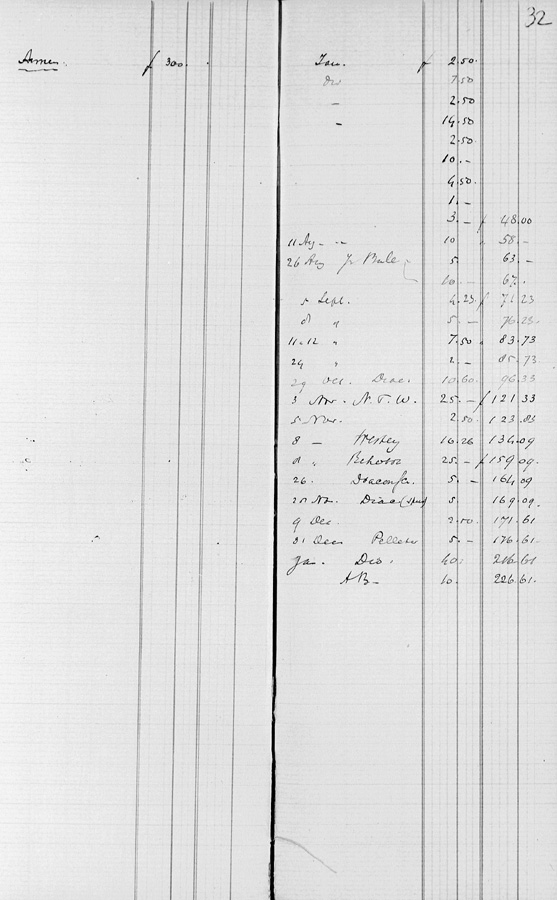 32
Armen. f 300.
Jan. f 2.50.
div 7.50
– 2.50
– 14.50
2.50.
10.–
4.50.
1.–
3.– f 48.00
11 Aug – 10 58.–
26 Aug 5. 63.–
10.– 67.
5 Sept. 4.23 f 71.23
8 " 5.– 76.23.
11.12 " 7.50 83.73
24 " 2.– 85.73
29 Oct. Diac. 10.60. 96.33
3 Nov. N.T.W. 25.– f 121.33
5 Nov. 2.50. 123.83
8 – 10.26 134.09
d " 25.– f 159.09.
26. 5.– 164.09
Diac 5. 169.09.
9 Dec. 2.50. 171.61
31 Dec 5.– 176.61.
Jan. Div. 40. 216.61
AB– 10. 226.61.